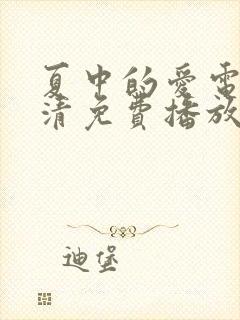 夏中的爱電
清免費播放
迪堡